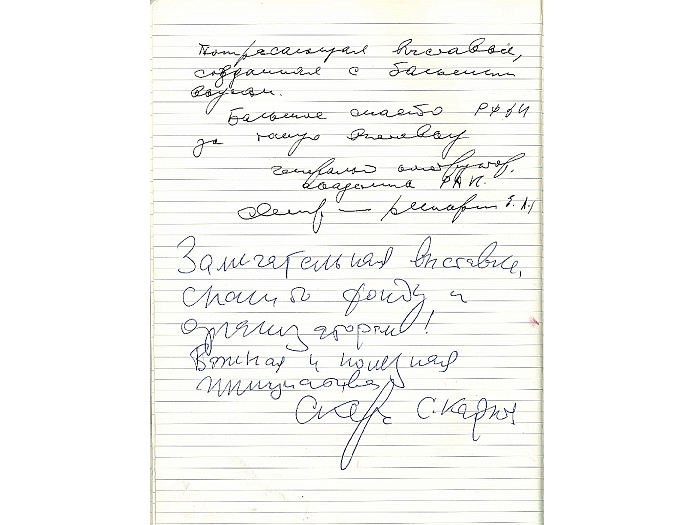 Потрясающая выставка,
созданная с большим
вкусом.
Большое спасибо РФФИ
за такую выставку
академика РАН.
Замечательная выставка,
спасибо фонду и
организаторам!
Важная и полезная
инициатива
С. Карпов